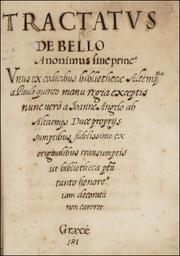 TRACTATVS
DE BELLO
Anonimus sine princ°
Vnus ex codicibus bibliothecæ Altemp̄
a Paulo quinto manu regia exceptis
nunc uerò a Ioanne Angelo ab
Altaemps Duce proprijs
sumptibus fidelissime ex
originalibus transumptis
ut bibliotheca p̄ta
tanto honore
iam decorata
non careret
Græcè
181